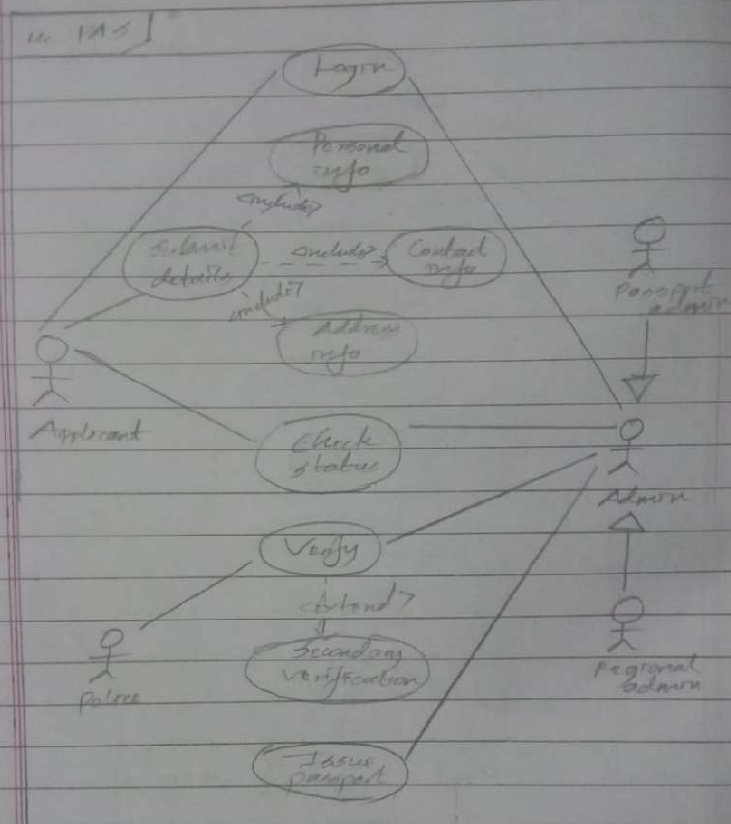 uc PAS
Login
Personal
info
<include>
Submit
details
<include>
Contact
info
<include>
Address
info
Passport
admin
Applicant
Check
status
Admin
Verify
<extend>
Secondary
verification
Police
Regional
admin
Issue
passport